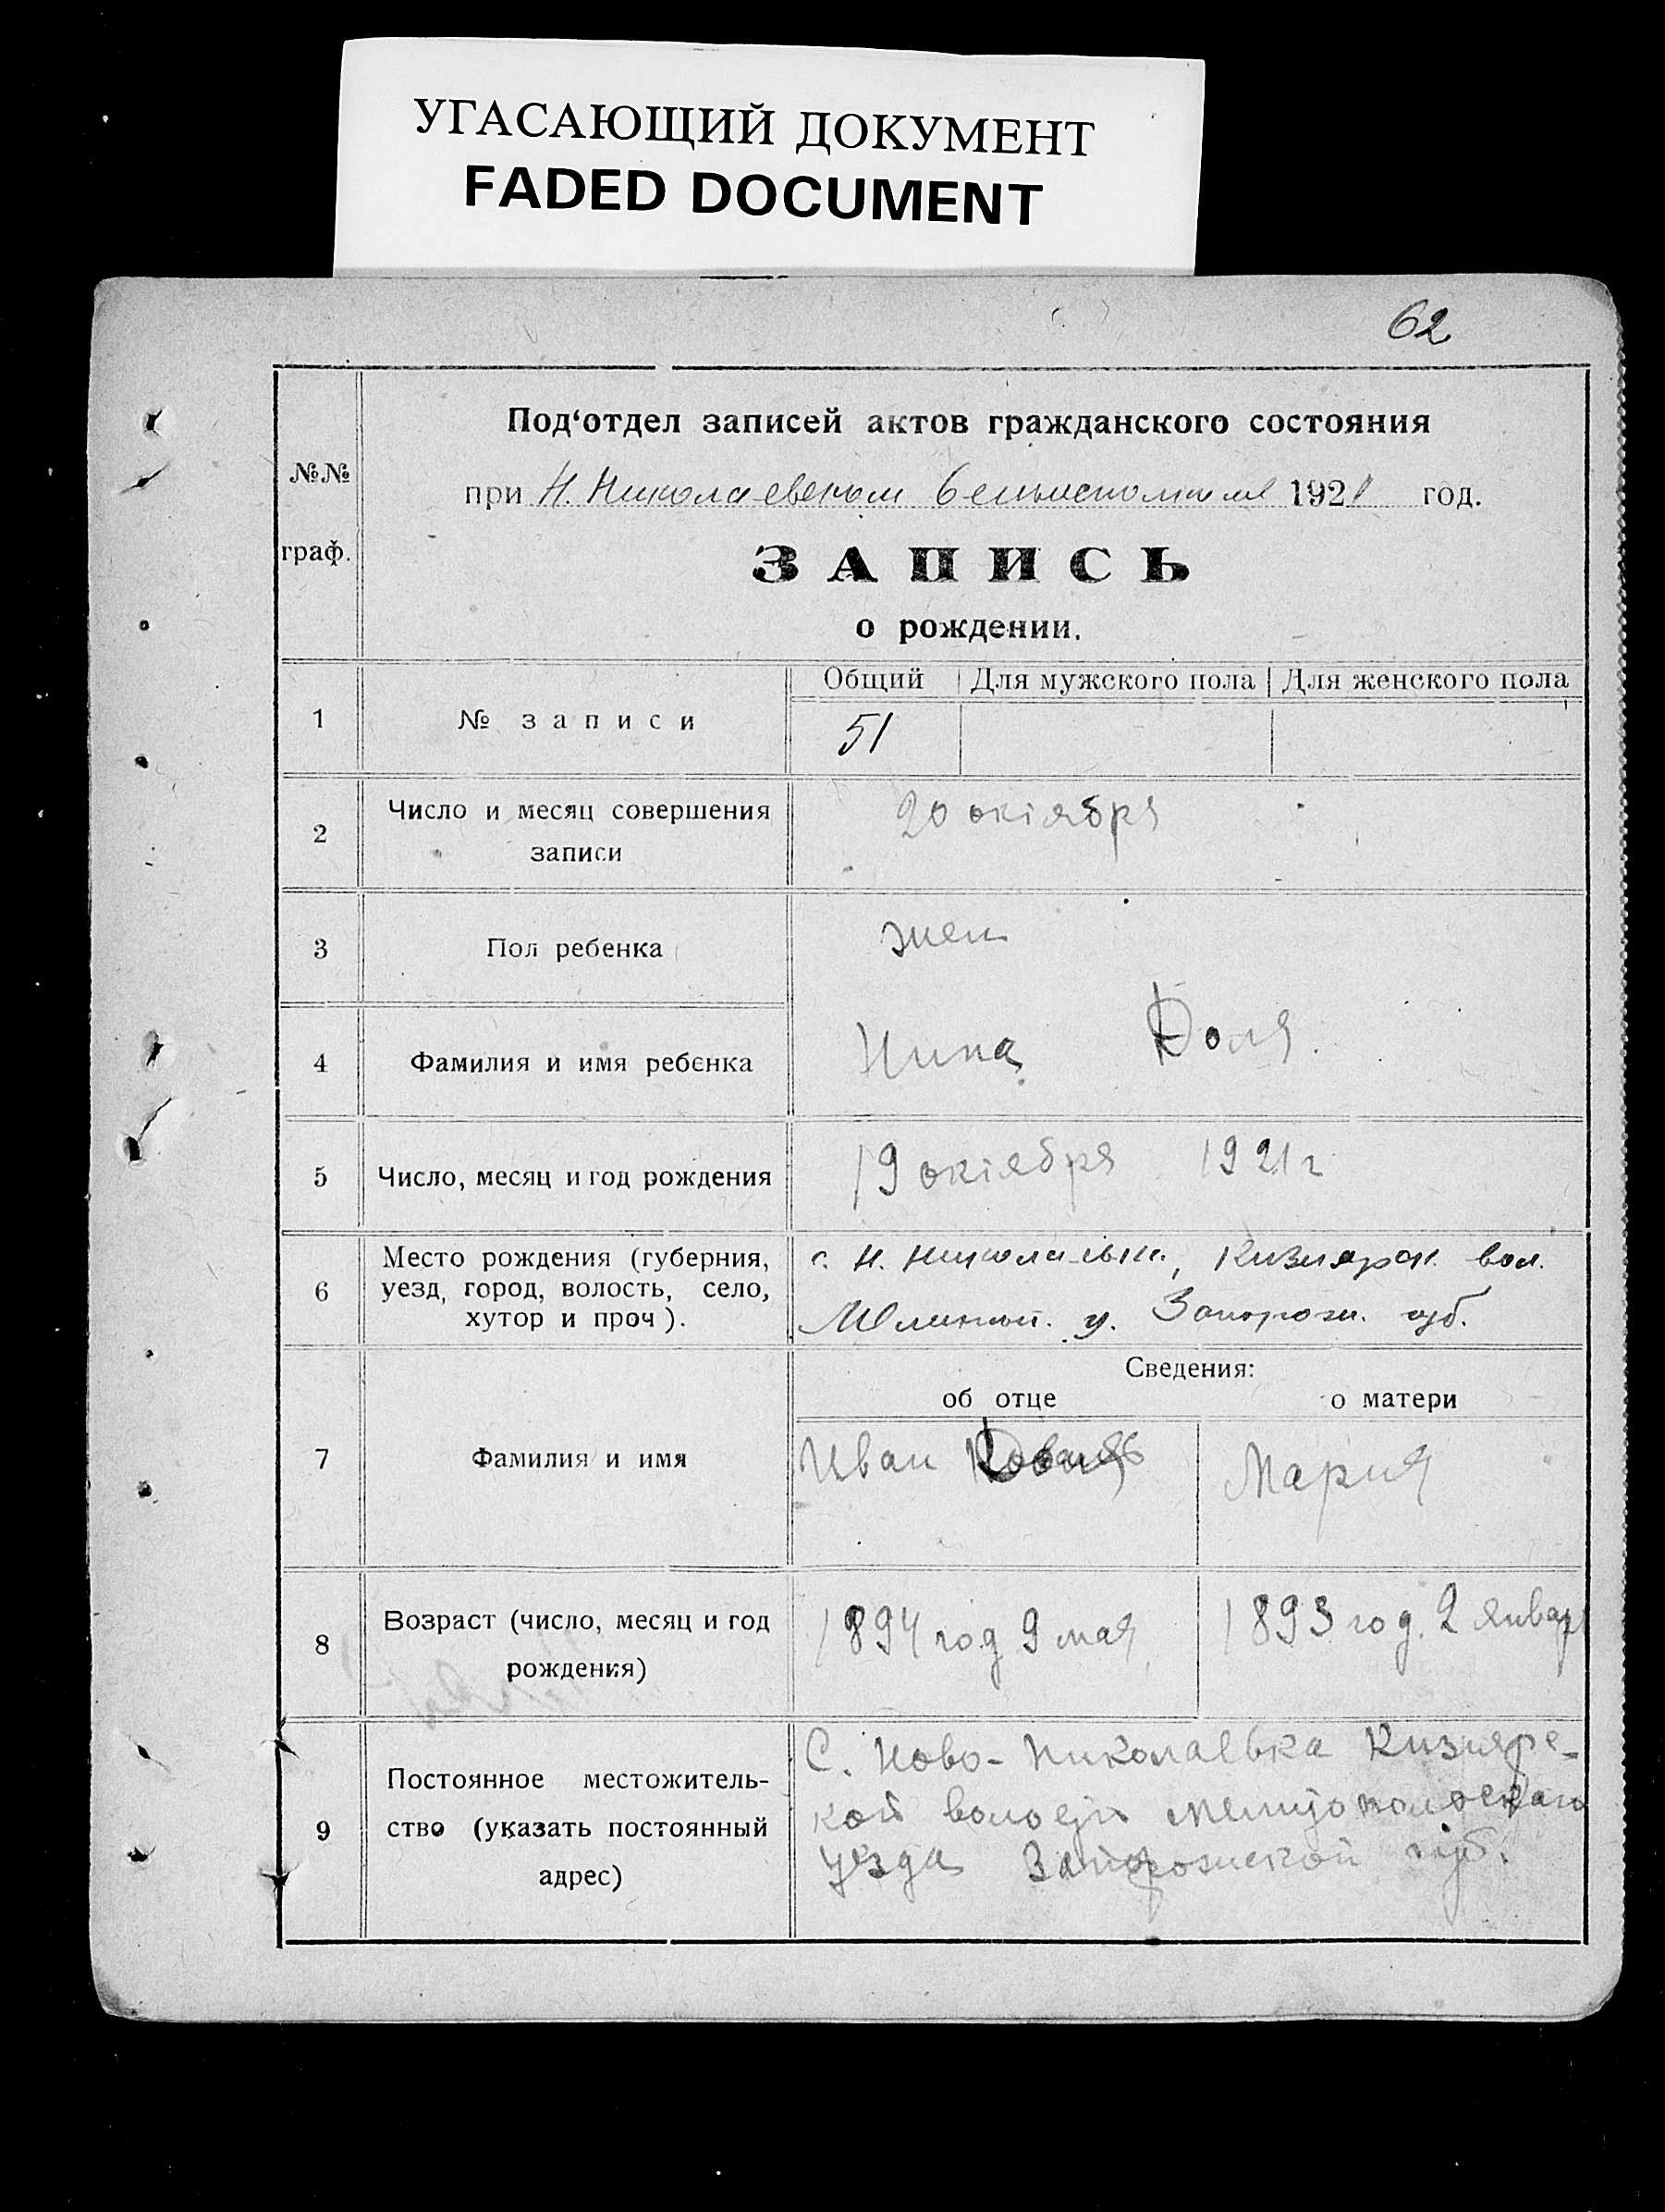 УГАСАЮЩИЙ ДОКУМЕНТ
FADED DOCUMENT
62
№№
граф.
Под‘отдел записей актов гражданского состояния
при Н. Николаевском 1921 год.
ЗАПИСЬ
о рождении.
1 № записи
Общий Для мужского пола Для женского пола
51
2 Число и месяц совершения
записи
20 октября
3 Пол ребенка
жен
4 Фамилия и имя ребенка
Нина Доля.
5 Число, месяц и год рождения
19 октября 1921 г
6 Место рождения (губерния,
уезд, город, волость, село,
хутор и проч).
с. Н. Николаевк., Кизиярск. вол.
у. Запорож. губ.
Сведения:
об отце о матери
7 Фамилия и имя
Иван Доля
Мария
8 Возраст (число, месяц и год
рождения)
1894 год 9 мая
1893 год 2 январ
9 Постоянное местожитель-
ство (указать постоянный
адрес)
С. Ново-Николаевка Кизиярс-
кой Мелитопольскаго
Уезда Запорожской губ.